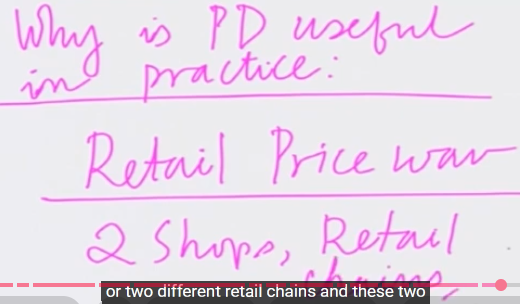 Why is PD useful
in practice:
Retail Price war
2 Shops, Retail
chains,
or two different retail chains and these two